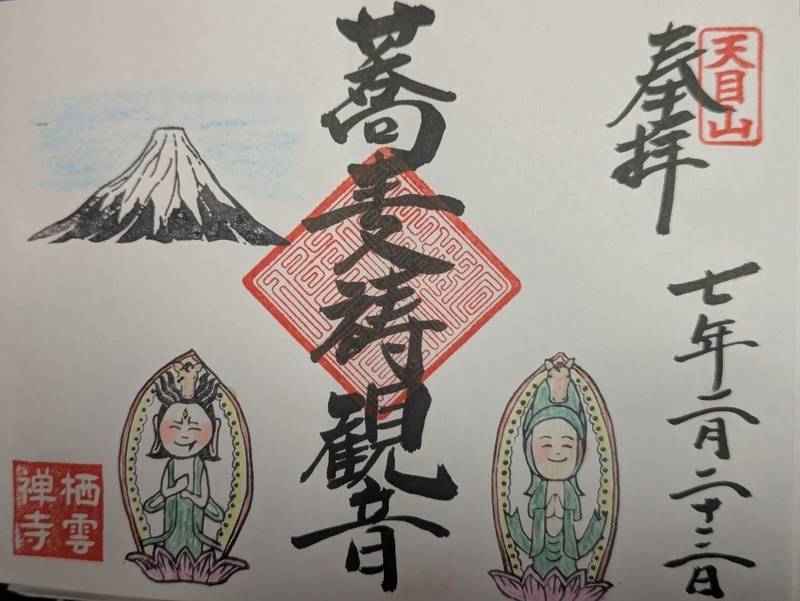 天目山
奉拝
七年二月二十三日
蕎麦祷観音
栖雲
禅寺